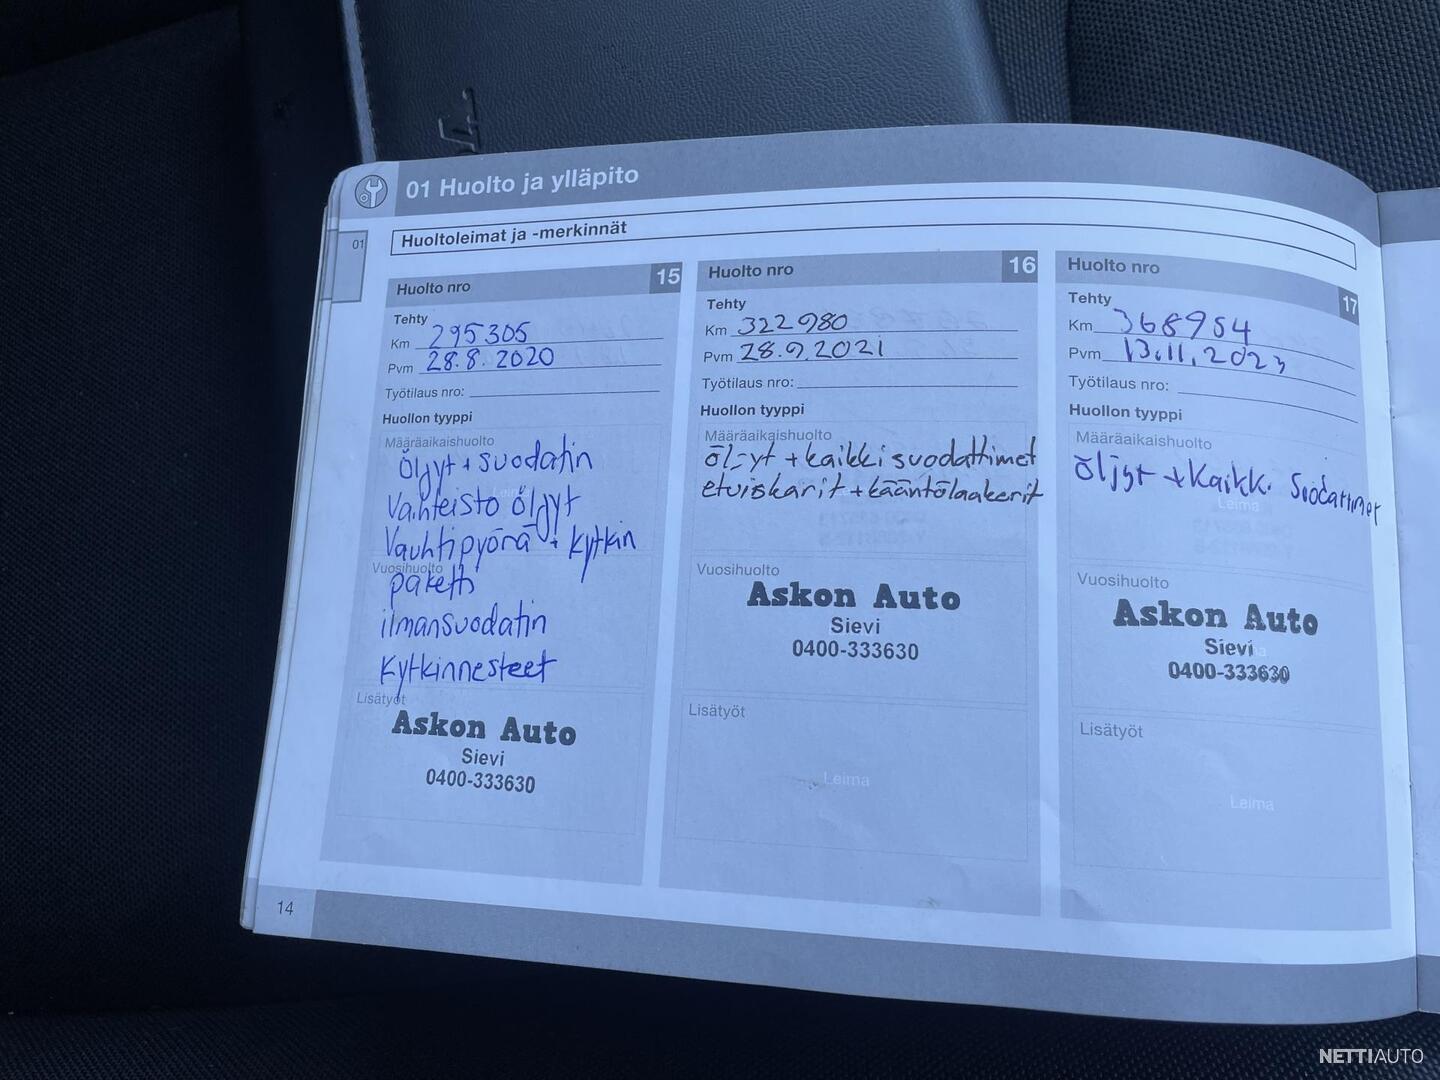 01 Huolto ja ylläpito
01
Huoltoleimat ja -merkinnät
Huolto nro 15
Tehty
Km 295305
Pvm 28.8.2020
Työtilaus nro:
Huollon tyyppi
Määräaikaishuolto
öljyt + suodatin
Vaihteisto öljyt
Vauhtipyörä + kytkin
Vuosihuolto
paketti
ilmansuodatin
Kytkinnesteet
Lisätyöt
Askon Auto
Sievi
0400-333630
Huolto nro 16
Tehty
Km 322980
Pvm 28.9.2021
Työtilaus nro:
Huollon tyyppi
Määräaikaishuolto
öljyt + kaikki suodattimet
etuiskarit + kääntölaakerit
Vuosihuolto
Askon Auto
Sievi
0400-333630
Lisätyöt
Leima
Huolto nro 17
Tehty
Km 368954
Pvm 13.11.2023
Työtilaus nro:
Huollon tyyppi
Määräaikaishuolto
öljyt + kaikki suodattimet
Leima
Vuosihuolto
Askon Auto
Sievi
0400-333630
Lisätyöt
Leima
14
NETTIAUTO